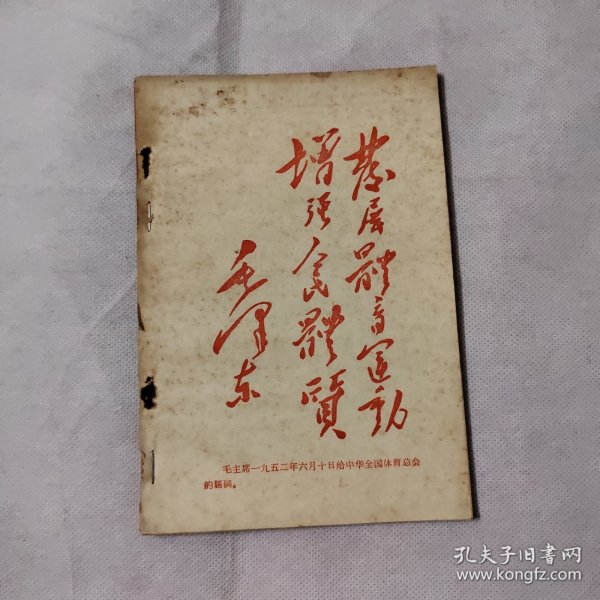 發展體育運動
增强人民體質
毛泽东
毛主席一九五二年六月十日给中华全国体育总会
的题词。
孔夫子旧书网
www.kongfz.com